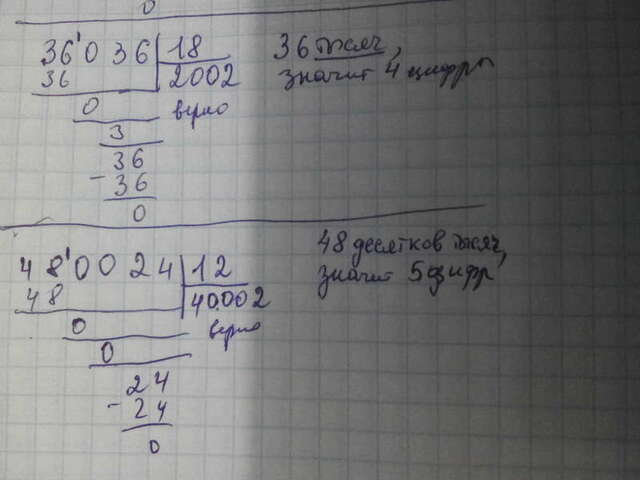 0
36'036 18 36 тысяч,
36 2002 значит 4 цифры
0 верно
3
36
- 36
0
48'0024 12 48 десятков тысяч,
48 40.002 значит 5 цифр
0 верно
0
24
- 24
0